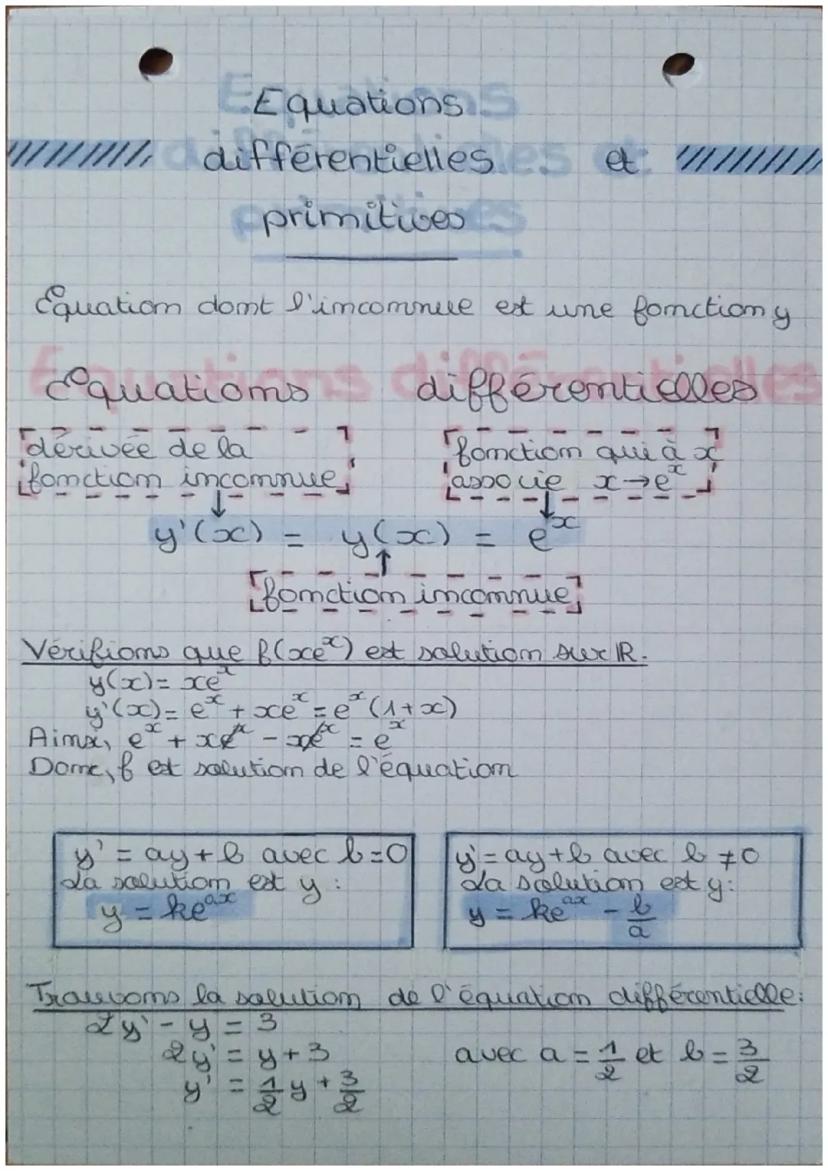 Equations
différentielles et
primitives
Equation dont l'inconnue est une fonction y
Equations différentielles
dérivée de la
fonction inconnue
fonction qui à x
associe x→eˣ
y'(x) = y(x) = eˣ
fonction inconnue
Vérifions que f(xeˣ) est solution sur ℝ.
y(x) = xeˣ
y'(x) = eˣ + xeˣ = eˣ(1+x)
Ainsi, eˣ + xeˣ - xeˣ = eˣ
Donc, f est solution de l'équation
y' = ay + b avec b = 0
La solution est y :
y = keᵃˣ
y' = ay + b avec b ≠ 0
La solution est y :
y = keᵃˣ - b/a
Trouvons la solution de l'équation différentielle :
2y' - y = 3
2y' = y + 3 avec a = 1/2 et b = 3/2
y' = 1/2 y + 3/2